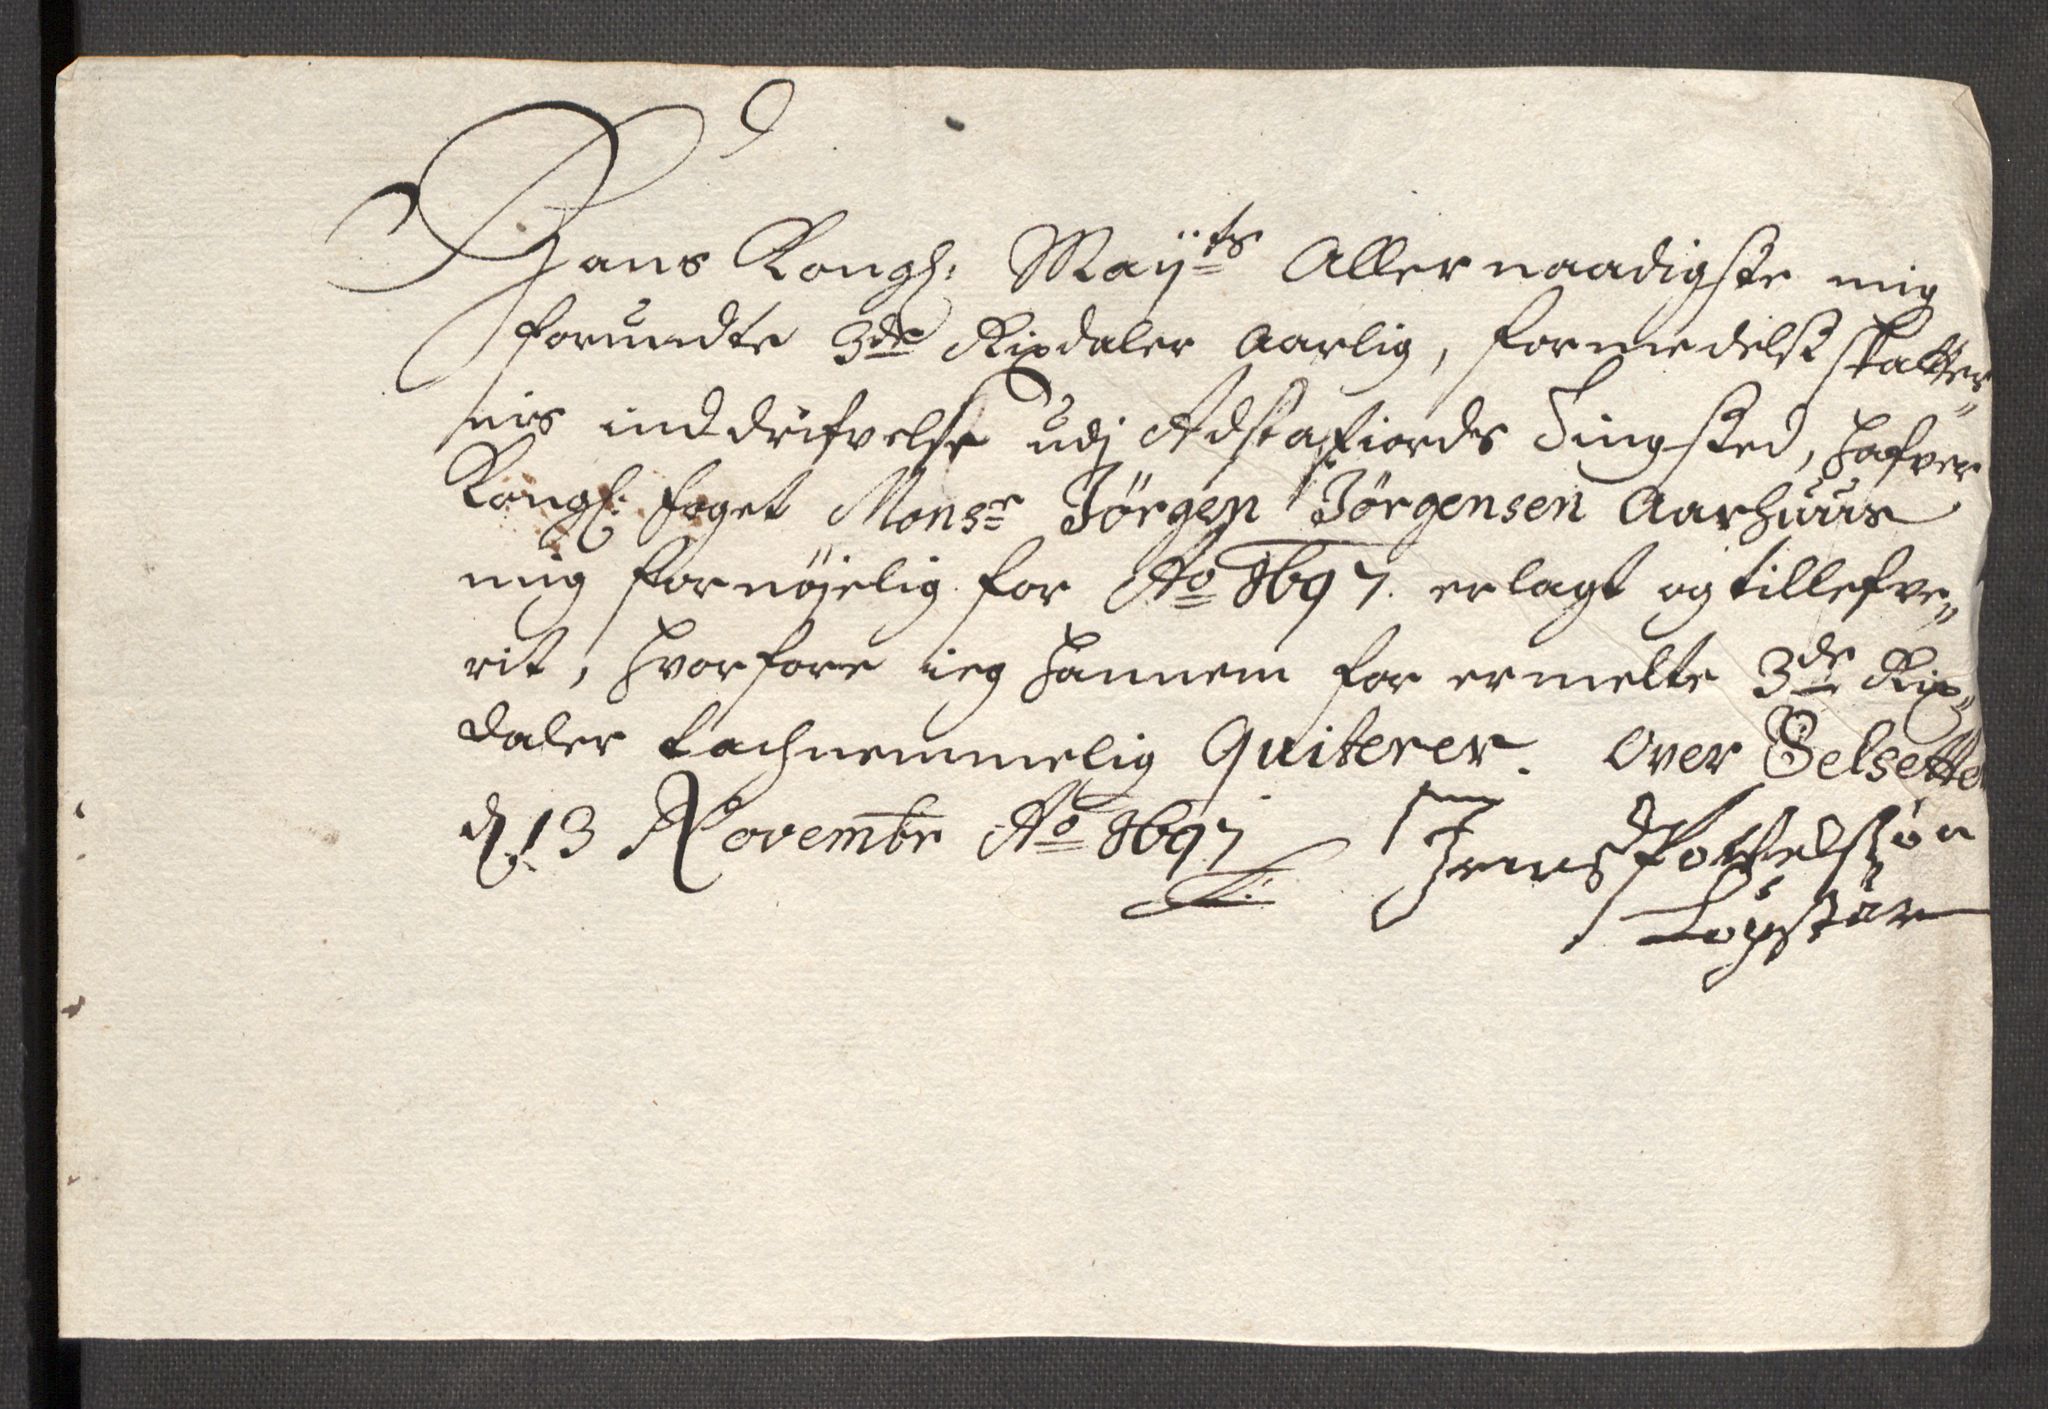 Hans Kongl: Mayts Allernaadigste mig
forundte 3de Rixdaler Aarlig, formedelst skatter„
nis inddrifvelse udj Astafiords Tingsted, hafver
Kongl: foget Monsr Jörgen Jörgensen Aarhuus
mig fornöjelig for Ao 1697. erlagt og tillefve„
rit, hvorfore ieg hannem for ermelte 3de Rix„
daler tachnemmelig Quiterer. Over Selsette
d. 13 Novembr Ao 1697
Jens Povelszön